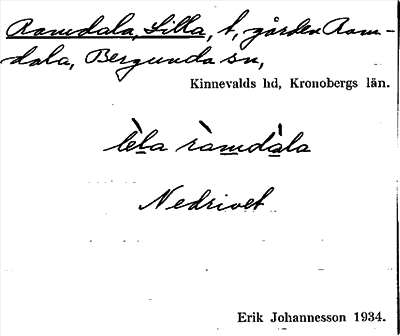 Ramdala, Lilla, t, gården Ram-
dala, Bergunda sn,
Kinnevalds hd, Kronobergs län.
lèla ràmdàla
Nedrivet
Erik Johannesson 1934.